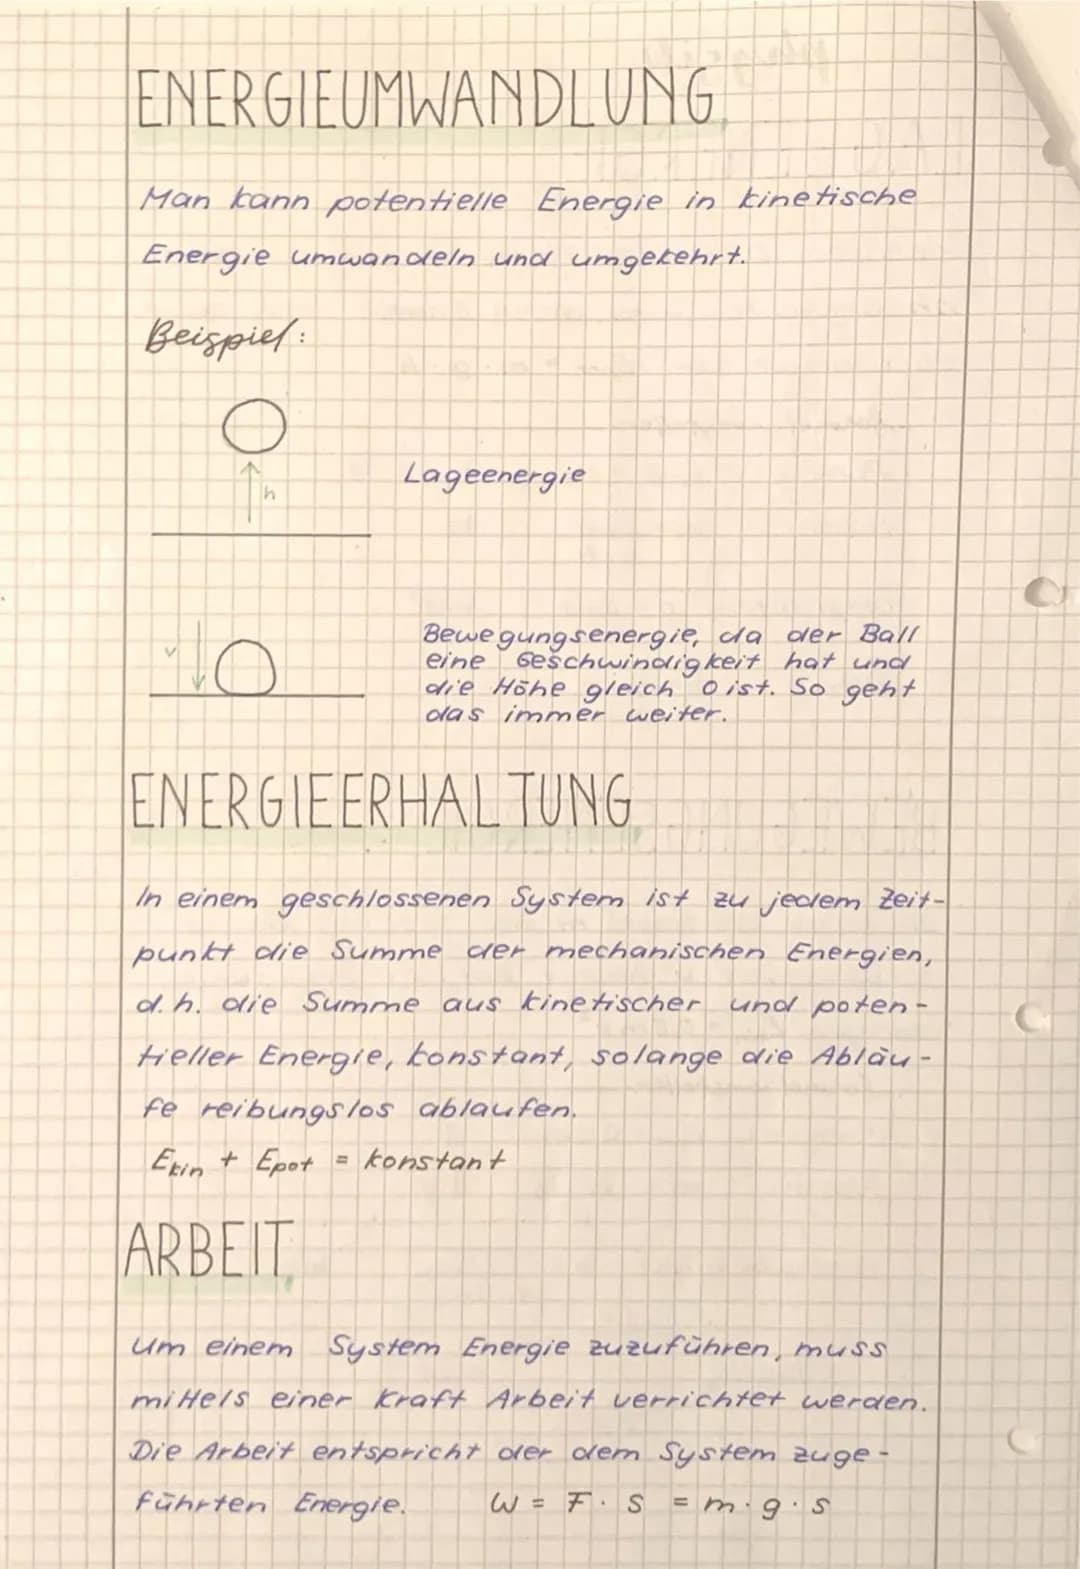 ENERGIEUMWANDLUNG
Man kann potentielle Energie in kinetische
Energie umwandeln und umgekehrt.
Beispiel:
h
Lageenergie
v
Bewegungsenergie, da der Ball
eine Geschwindigkeit hat und
die Höhe gleich 0 ist. So geht
das immer weiter.
ENERGIEERHALTUNG
In einem geschlossenen System ist zu jedem Zeit-
punkt die Summe der mechanischen Energien,
d.h. die Summe aus kinetischer und poten-
tieller Energie, konstant, solange die Abläu-
fe reibungslos ablaufen.
Ekin + Epot = konstant
ARBEIT
Um einem System Energie zuzuführen, muss
mittels einer Kraft Arbeit verrichtet werden.
Die Arbeit entspricht der dem System zuge-
führten Energie. W = F · s = m · g · s